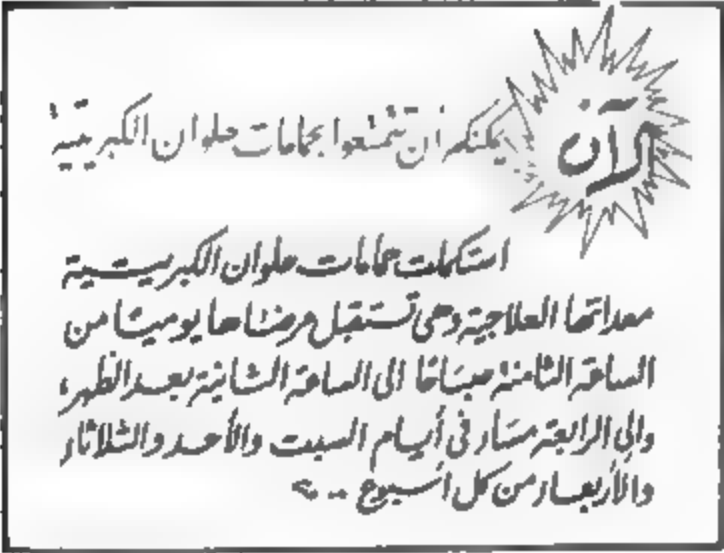 الآن
يمكنكم أن تتمتعوا بحمامات حلوان الكبريتية
استكملت حمامات حلوان الكبريتية
معداتها العلاجية وهى تستقبل مرضاها يوميا من
الساعة الثامنة صباحا الى الساعة الثانية بعد الظهر،
والى الرابعة مساء فى أيام السبت والأحد والثلاثاء
والأربعاء من كل أسبوع ..